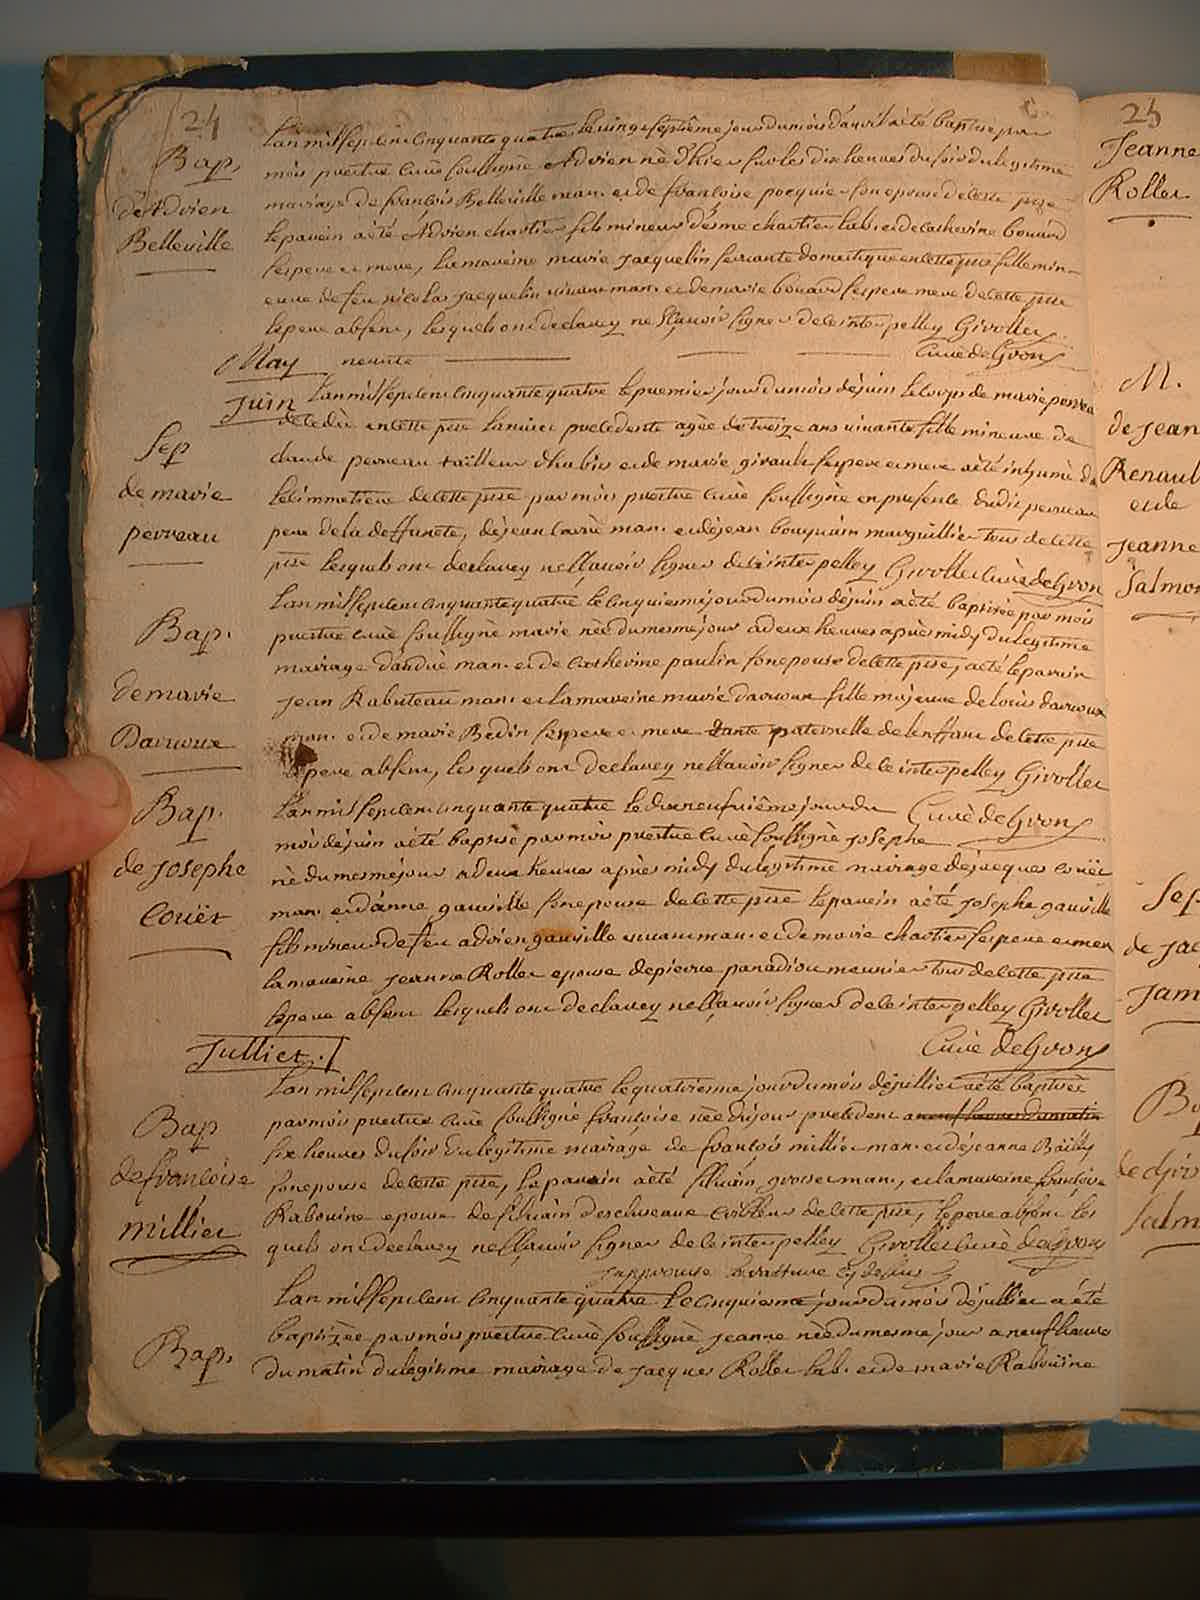 24
Bap.
de Adrien
Belleville
Lan mil sept cent cinquante quatre le vingt septième jour du mois d'avril a été baptisé par
mois prestre curé soussigné Adrien né d'hier sur les dix heures du soir du legitime
mariage de françois Belleville man. et de françoise pocquie son epouse de cette psse
le parein a été Adrien chartier fils mineur d'esme chartier lab. et de catherine bouard
ses pere et mere, la mareine marie jacquelin servante domestique en cette psse fille min-
eure de feu nicolas jacquelin vivant man. et de marie bouard ses pere mere de cette psse
le pere absent, lesquels ont declarez ne sçavoir signer de ce interpelley Givollet
curé de Gron
May neante
Juin
Sep
de marie
perreau
Lan mil sept cent cinquante quatre le premier jour du mois de juin le corps de marie perreau
decedée en cette psse la nuict precedente agée de treize ans vivante fille mineure de
claude perreau tailleur d'habits et de marie girault ses pere et mere a été inhumé ds
le cimmetiere de cette psse par mois prestre curé soussigné en presence dudit perreau
pere de la deffuncte, de jean man. et de jean bouquin marguillier tous de cette
psse lesquels ont declarez ne sçavoir signer de ce interpelley Givollet curé de Gron
Bap.
de marie
Darnoux
Lan mil sept cent cinquante quatre le cinquiesme jour du mois de juin a été baptisée par mois
prestre curé soussigné marie née du mesme jour a deux heures apres midy du legitime
mariage d'andré man. et de catherine paulin son epouse de cette psse, a été le parain
jean Rabuteau man. et la mareine marie darnoux fille majeure de louis darnoux
man. et de marie Bedin ses pere et mere tante paternelle de l'enffant de cette psse
le pere absent, lesquels ont declarez ne sçavoir signer de ce interpelley Givollet
curé de Gron
Bap.
de Josephe
Couët
Lan mil sept cent cinquante quatre le dix neufviême jour du
mois de juin a été baptisé par mois prestre curé soussigné Josephe
né du mesme jour a deux heures après midy du legitime mairage de jacques couët
man. et d'anne gauville son epouse de cette psse le parein a été Josephe gauville
fils mineur de feu adrien gauville vivant man. et de marie chartier ses pere et mere
la mareine jeanne Rollet epouse de pierre panadiou meunier tous de cette psse
le pere absent lesquels ont declarez ne sçavoir signer de ce interpelley Givollet
Curé de Gron
Julliet.
Bap
de françoise
millier
Lan mil sept cent cinquante quatre le quatriesme jour du mois de juilliet a été baptisée
par mois prestre curé soussigné françoise née du jour precedent a neuf heures du matin
six heures du soir du legitime mariage de françois millier man. et de jeanne Bailly
son epouse de cette psse, le parain a été silvain grosset man., et la mareine françoise
Rabouine epouse de silvain descluseaux de cette psse, le pere absent les
quels ont declarez ne sçavoir signer de ce interpelley Givollet curé de Gron
j'approuve la rasture cy dessus
Bap.
Lan mil sept cent cinquante quatre le cinquiesme jour du mois de julliet a été
baptizée par mois prestre curé soussigné jeanne née du mesme jour a neuf heures
du matin du legitime mairage de jacques Rollet lab. et de marie Rabouine
25
Jeanne
Rollet
M.
de Jean
Renault
et de
jeanne
Salmon
Sep.
de Jac
Jam
Salm